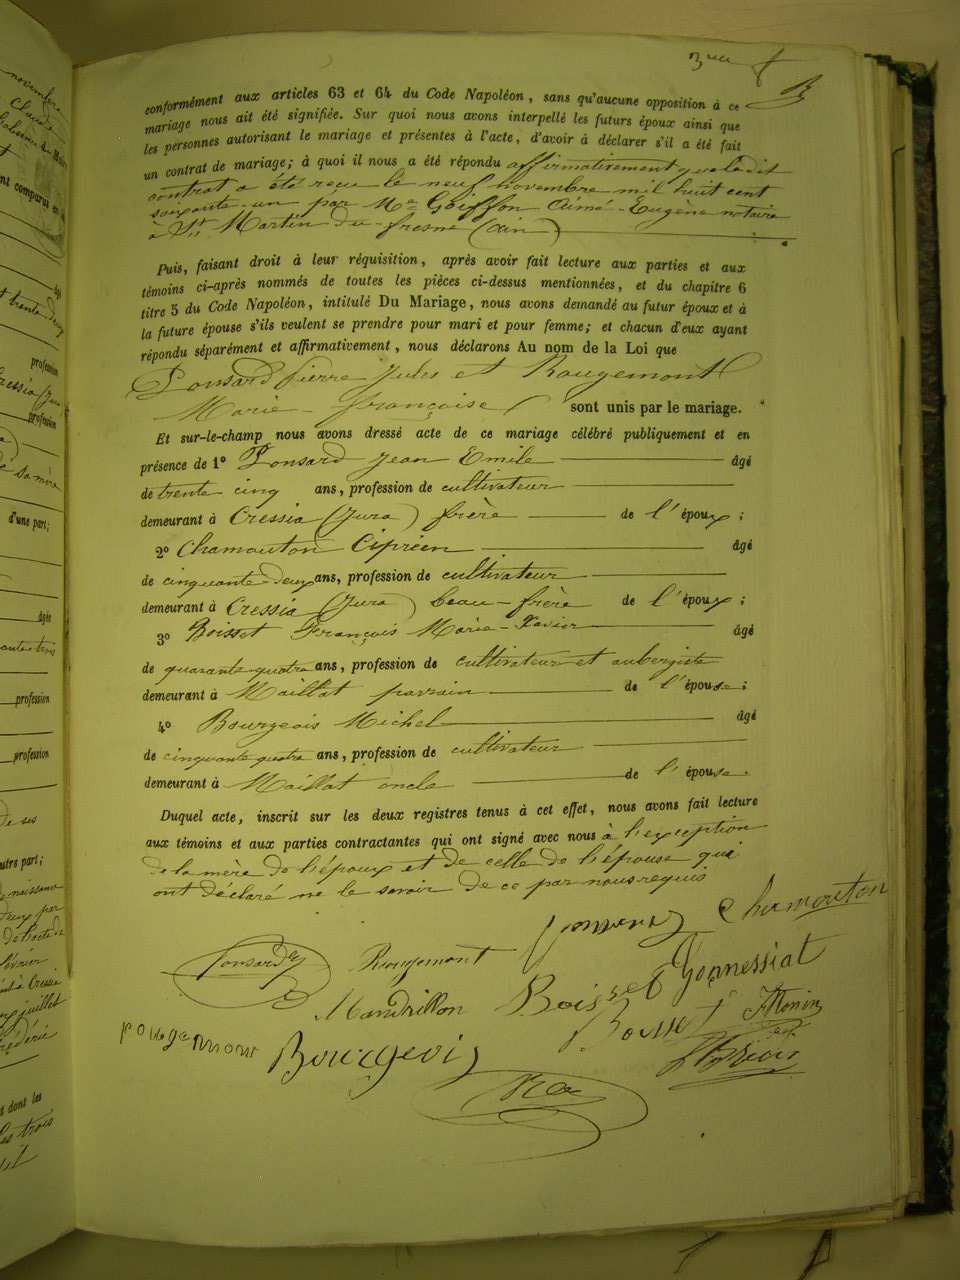 3me f
conformément aux articles 63 et 64 du Code Napoléon, sans qu'aucune opposition à ce
mariage nous ait été signifiée. Sur quoi nous avons interpellé les futurs époux ainsi que
les personnes autorisant le mariage et présentes à l'acte, d'avoir à déclarer s'il a été fait
un contrat de mariage; à quoi il nous a été répondu affirmativement que ledit
contrat a été reçu le neuf novembre mil huit cent
soixante-un par Me Goiffon Aimé-Eugène notaire
à St Martin du-fresne (ain)
Puis, faisant droit à leur réquisition, après avoir fait lecture aux parties et aux
témoins ci-après nommés de toutes les pièces ci-dessus mentionnées, et du chapitre 6
titre 5 du Code Napoléon, intitulé Du Mariage, nous avons demandé au futur époux et à
la future épouse s'ils veulent se prendre pour mari et pour femme; et chacun d'eux ayant
répondu séparément et affirmativement, nous déclarons Au nom de la Loi que
Ponsard Pierre Jules et Rougemont
Marie-françoise sont unis par le mariage.
Et sur-le-champ nous avons dressé acte de ce mariage célébré publiquement et en
présence de 1° Ponsard Jean Emile âgé
de trente cinq ans, profession de cultivateur
demeurant à Cressia (Jura) frère de l'époux;
2° Chamouton Ciprien âgé
de cinquante-deux ans, profession de cultivateur
demeurant à Cressia (Jura) beau-frère de l'époux;
3° Boisset François Marie-Xavier âgé
de quarante quatre ans, profession de cultivateur et aubergiste
demeurant à Maillat parrain de l'épouse;
4° Bourgeois Michel âgé
de cinquante quatre ans, profession de cultivateur
demeurant à Maillat oncle de l'épouse.
Duquel acte, inscrit sur les deux registres tenus à cet effet, nous avons fait lecture
aux témoins et aux parties contractantes qui ont signé avec nous à l'exception
de la mère de l'époux et de celle de l'épouse qui
ont déclaré ne le savoir de ce par nous requis
Chamouton
Ponsard Rougemont Gonnessiat
Mandrillon Boisset
rougemont Bourgeois Bousset